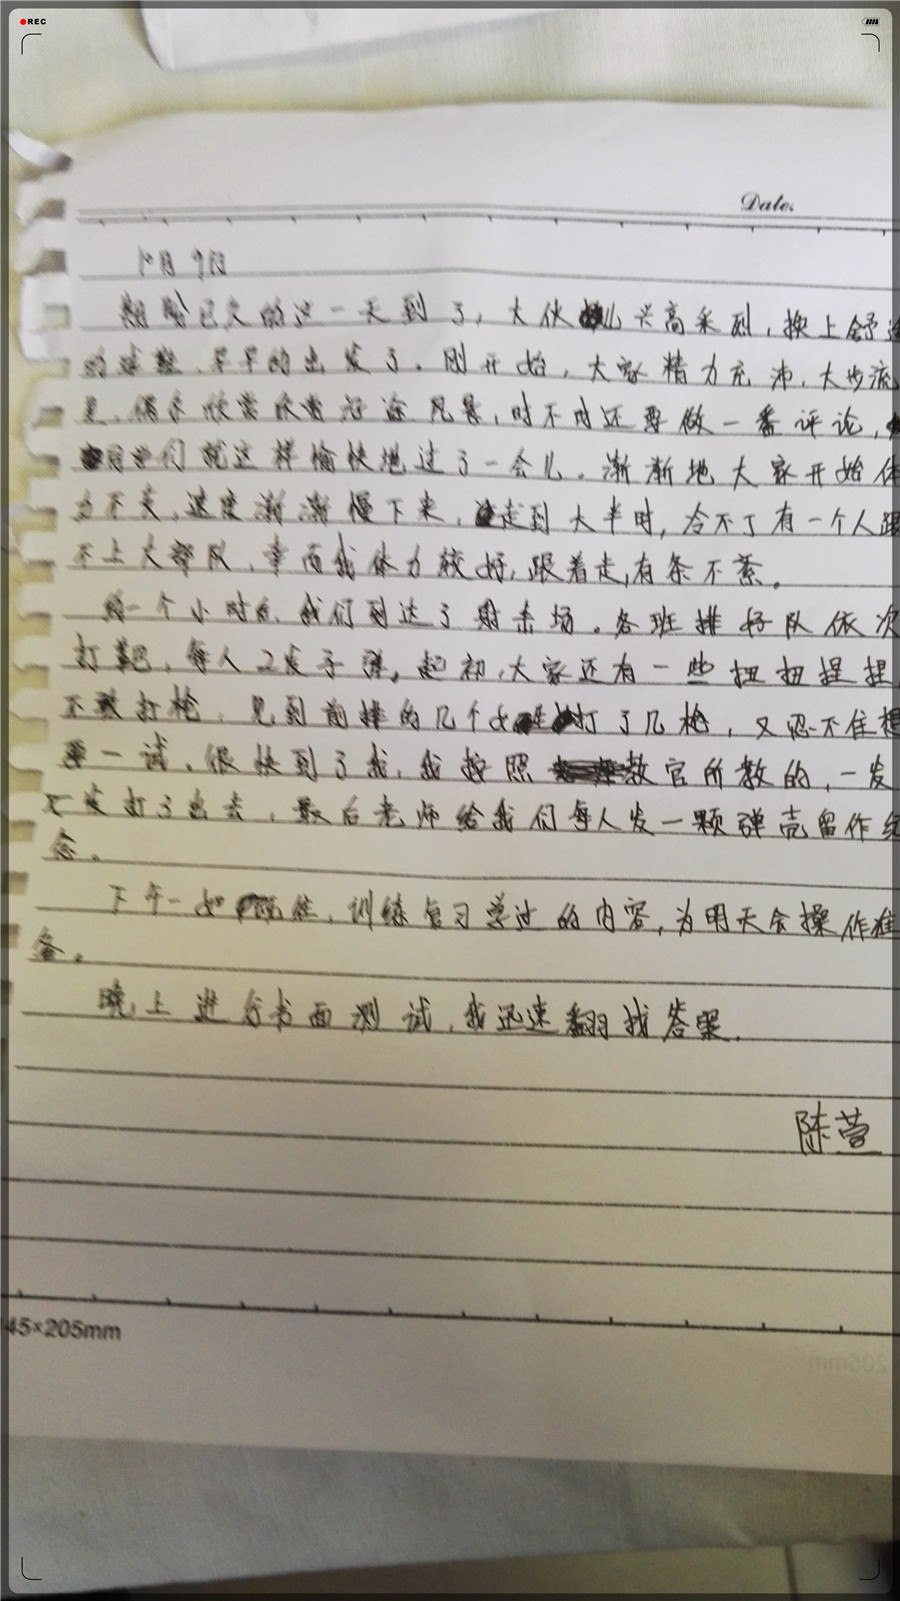 REC
Date.
10月9日
期盼已久的这一天到了，大伙儿兴高采烈，换上舒适
的球鞋，早早的出发了。刚开始，大家精力充沛，大步流
星，偶尔欣赏欣赏沿途风景，时不时还要做一番评论，
我们就这样愉快地过了一会儿。渐渐地大家开始体
力不支，速度渐渐慢下来，走到大半时，冷不丁有一个人跟
不上大部队，幸而我体力较好，跟着走，有条不紊。
一个小时后，我们到达了射击场。各班排好队依次
打靶，每人2发子弹。起初，大家还有一些扭扭捏捏，
不敢打枪，见到前排的几个女打了几枪，又忍不住想
要一试。很快到了我，我按照教官所教的，一发
发打了出去，最后老师给我们每人发一颗弹壳留作纪
念。
下午一如既往，训练复习学过的内容，为明天会操作准
备。
晚上进行书面测试，我迅速翻找答案.
陈萱
145×205mm